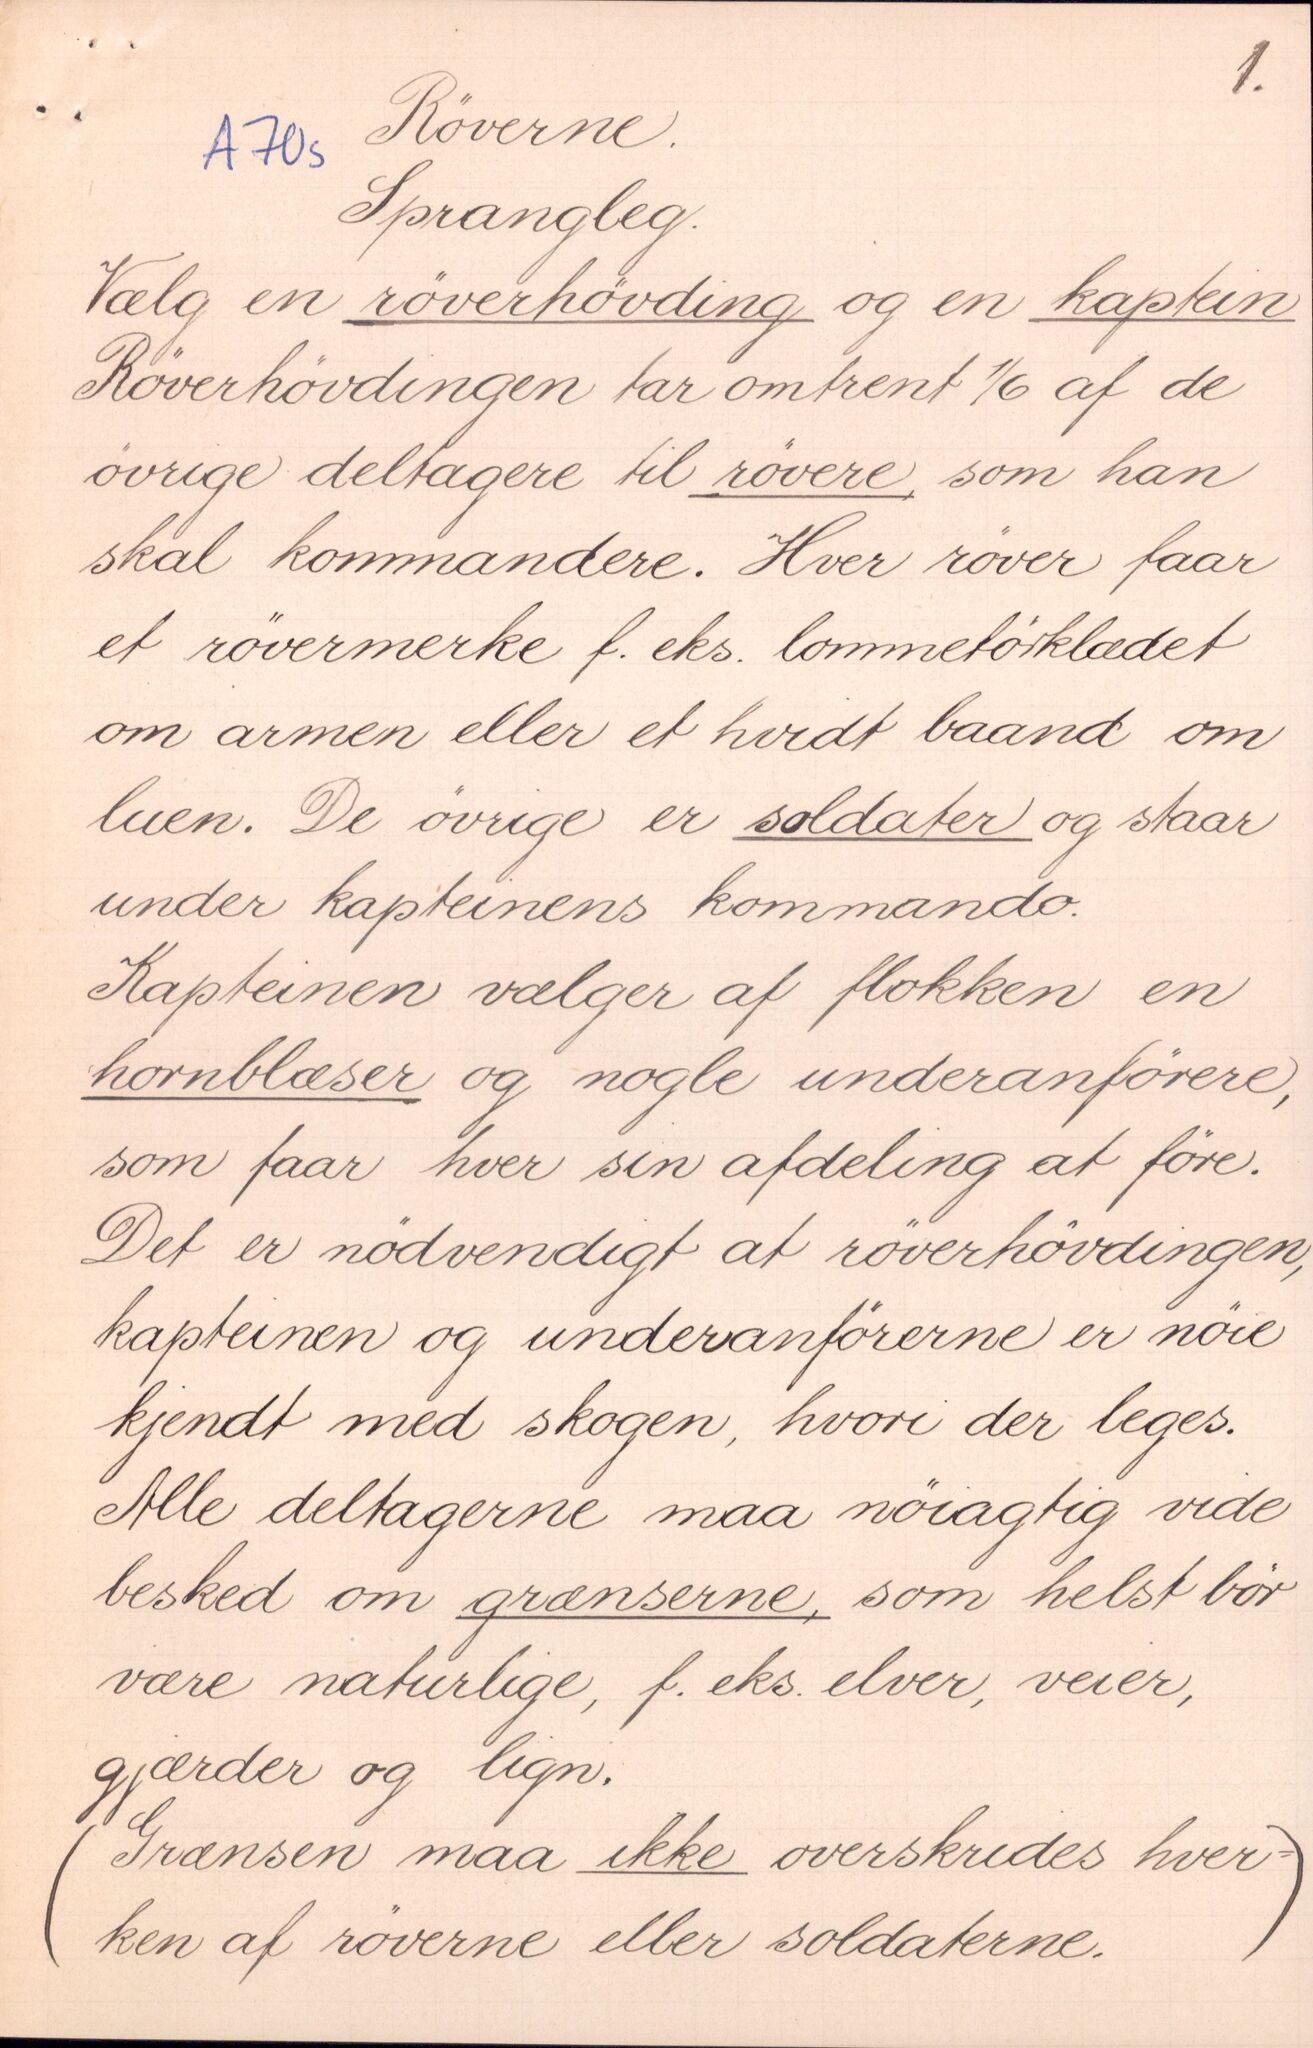 1.
Röverne.
A 70s
Sprangleg.
Vælg en röverhövding og en kaptein
Röverhövdingen tar omtrent 1/6 af de
övrige deltagere til rövere, som han
skal kommandere. Hver röver faar
et rövermerke f. eks. lommetörklædet
om armen eller et hvidt baand om
luen. De övrige er soldater og staar
under kapteinens kommando.
Kapteinen vælger af flokken en
hornblæser og nogle underanförere,
som faar hver sin afdeling at före.
Det er nödvendigt at röverhövdingen,
kapteinen og underanförerne er nöie
kjendt med skogen, hvori der leges.
Alle deltagerne maa nöiagtig vide
besked om grænserne, som helst bör
være naturlige, f. eks. elver, veier,
gjærder og lign.
(Grænsen maa ikke overskrides hver=
ken af röverne eller soldaterne.)